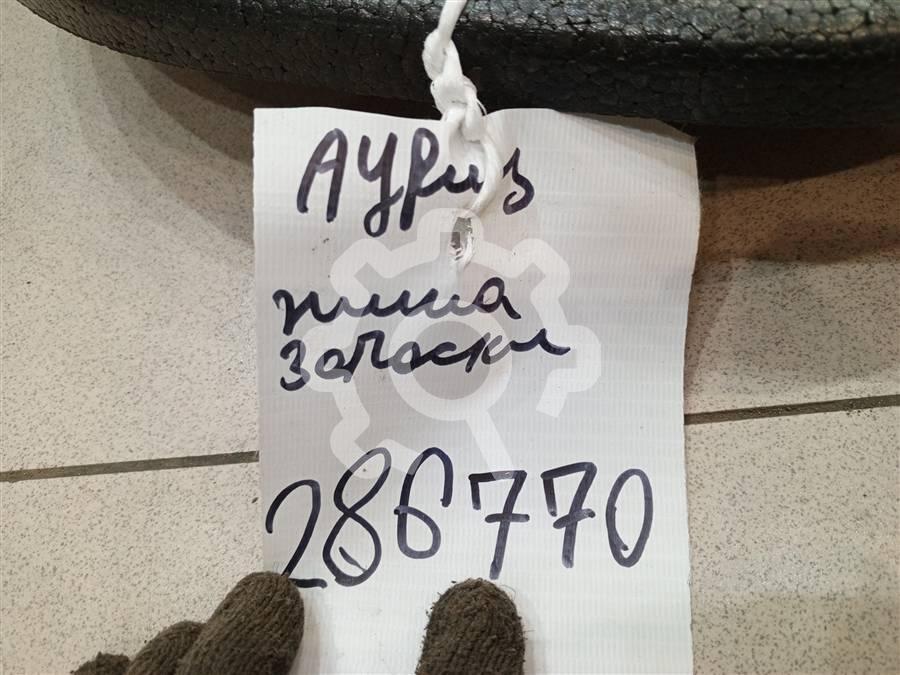 Аурис
ниша
запаски
286770